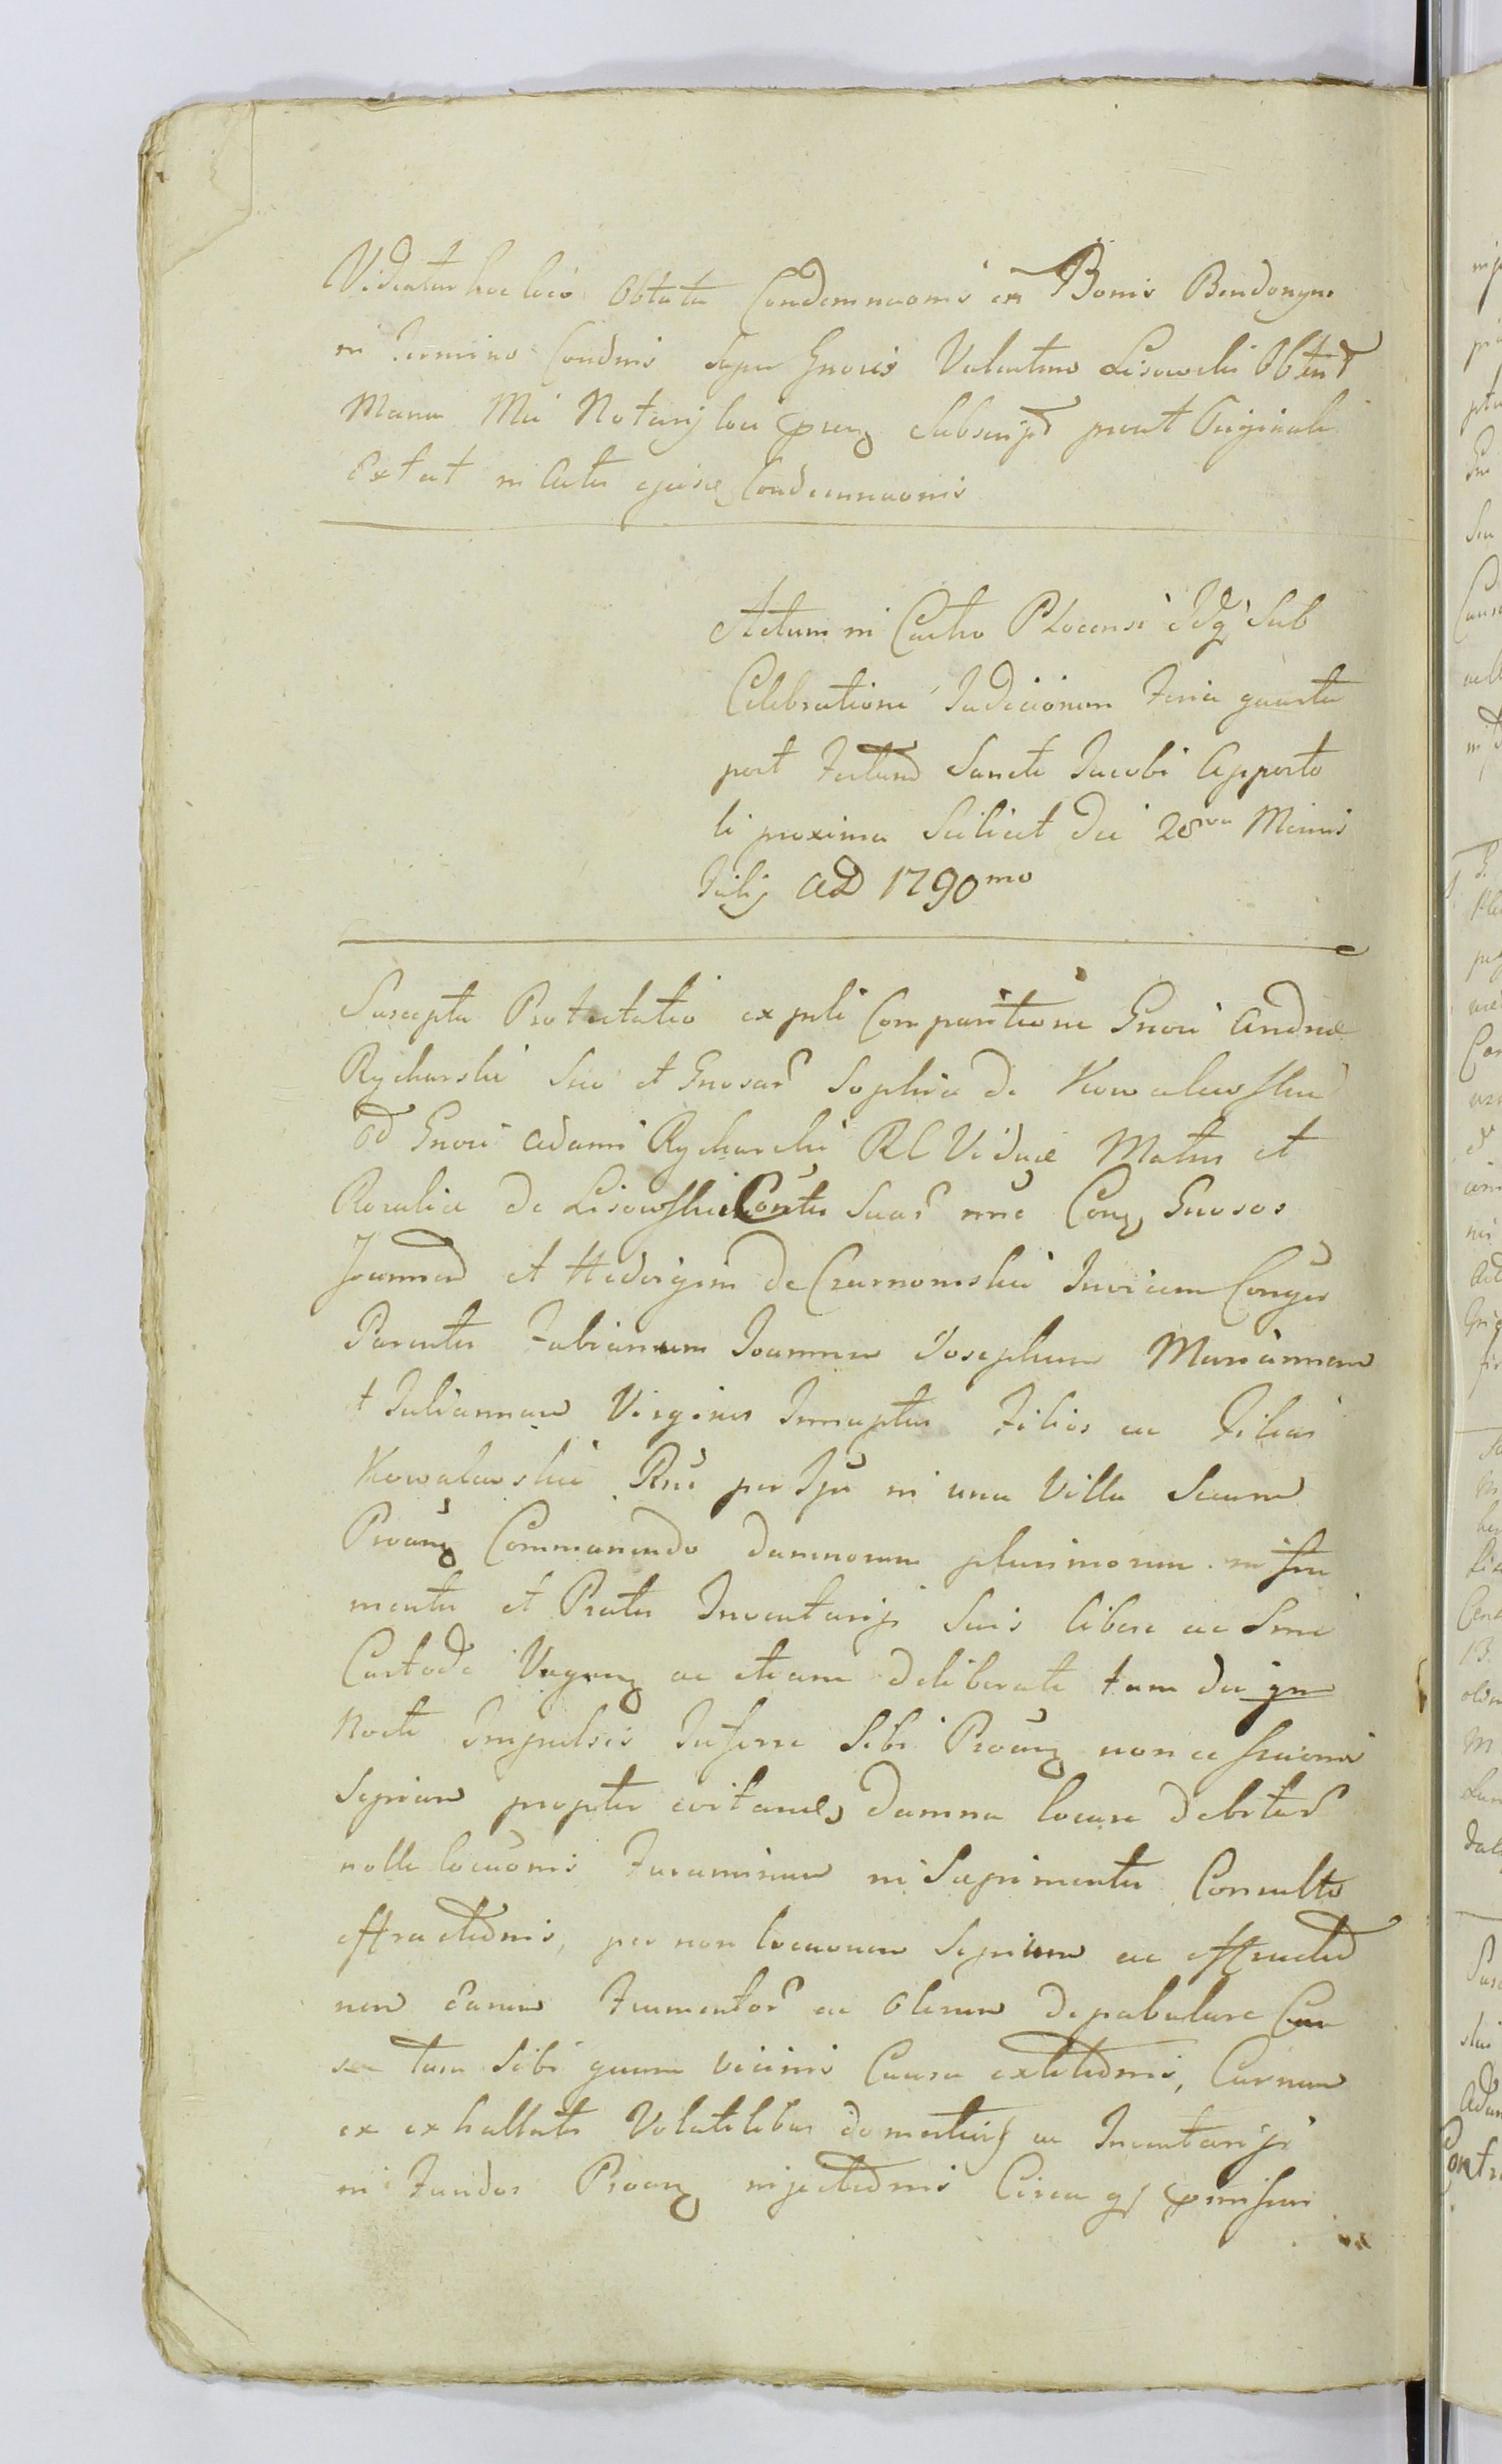 Videatur hoc loco Oblata Condemnaonis in Bonis Bendonyne
in Termino Condnis super Gnosis Valentino Lisowski Obtent
Manu Mei Notarij loci prnz Subscript prout Originale
Extat in Actis ejusce Condemnaonis
Actum in Castro Plocensi Idq Sub
Celebratione Iudiciorum Feria quarta
post Festum Sancti Iacobi Apposto
li proxima Scilicet die 28va Mensis
Iulij AD 1790mo
Suscepta Protestatio ex psli Comparitione Gnosi Andreæ
Rycharski Suo et Gnosar Sophiæ de Kowalewskie
od Gnosi Adami Rycharski RC Viduæ Matris et
Rosaliæ de Lisowskie Contis Suar nne Conz Gnosos
Joannem et Hedvigim de Czarnomskie Invicem Conges
Parentes Fabianum Joannem Josephum Mariannam
t Juliannam Virgines Innuptas Filios ac Filias
Kowalewskie Rne per Ipn in una Villa Secum
Proanz Commanendo damnorum plurimorum in fru
mentis et Pratis Inventarijs Suis libere ac Sine
Custode Vaganz ac etiam deliberate tam die qm
Nocte Impulsis Inferre Sibi Proanz non cessaverunt
Sepium propter evitandæ damna locare debitas
nolle locaonis Foraminum in Sepimentis Consulto
effractionis, per non locaonem Sepium ac effractio
nem earum Frumentor ac Olerum depabulare Cau
sæ tum Sibi quam vicinis Causa extitionis, Carnem
ex exhallatis Volatilibus domesticis ac Inventarijs
in Fundos Proanz injectionis Circa qs pmissum